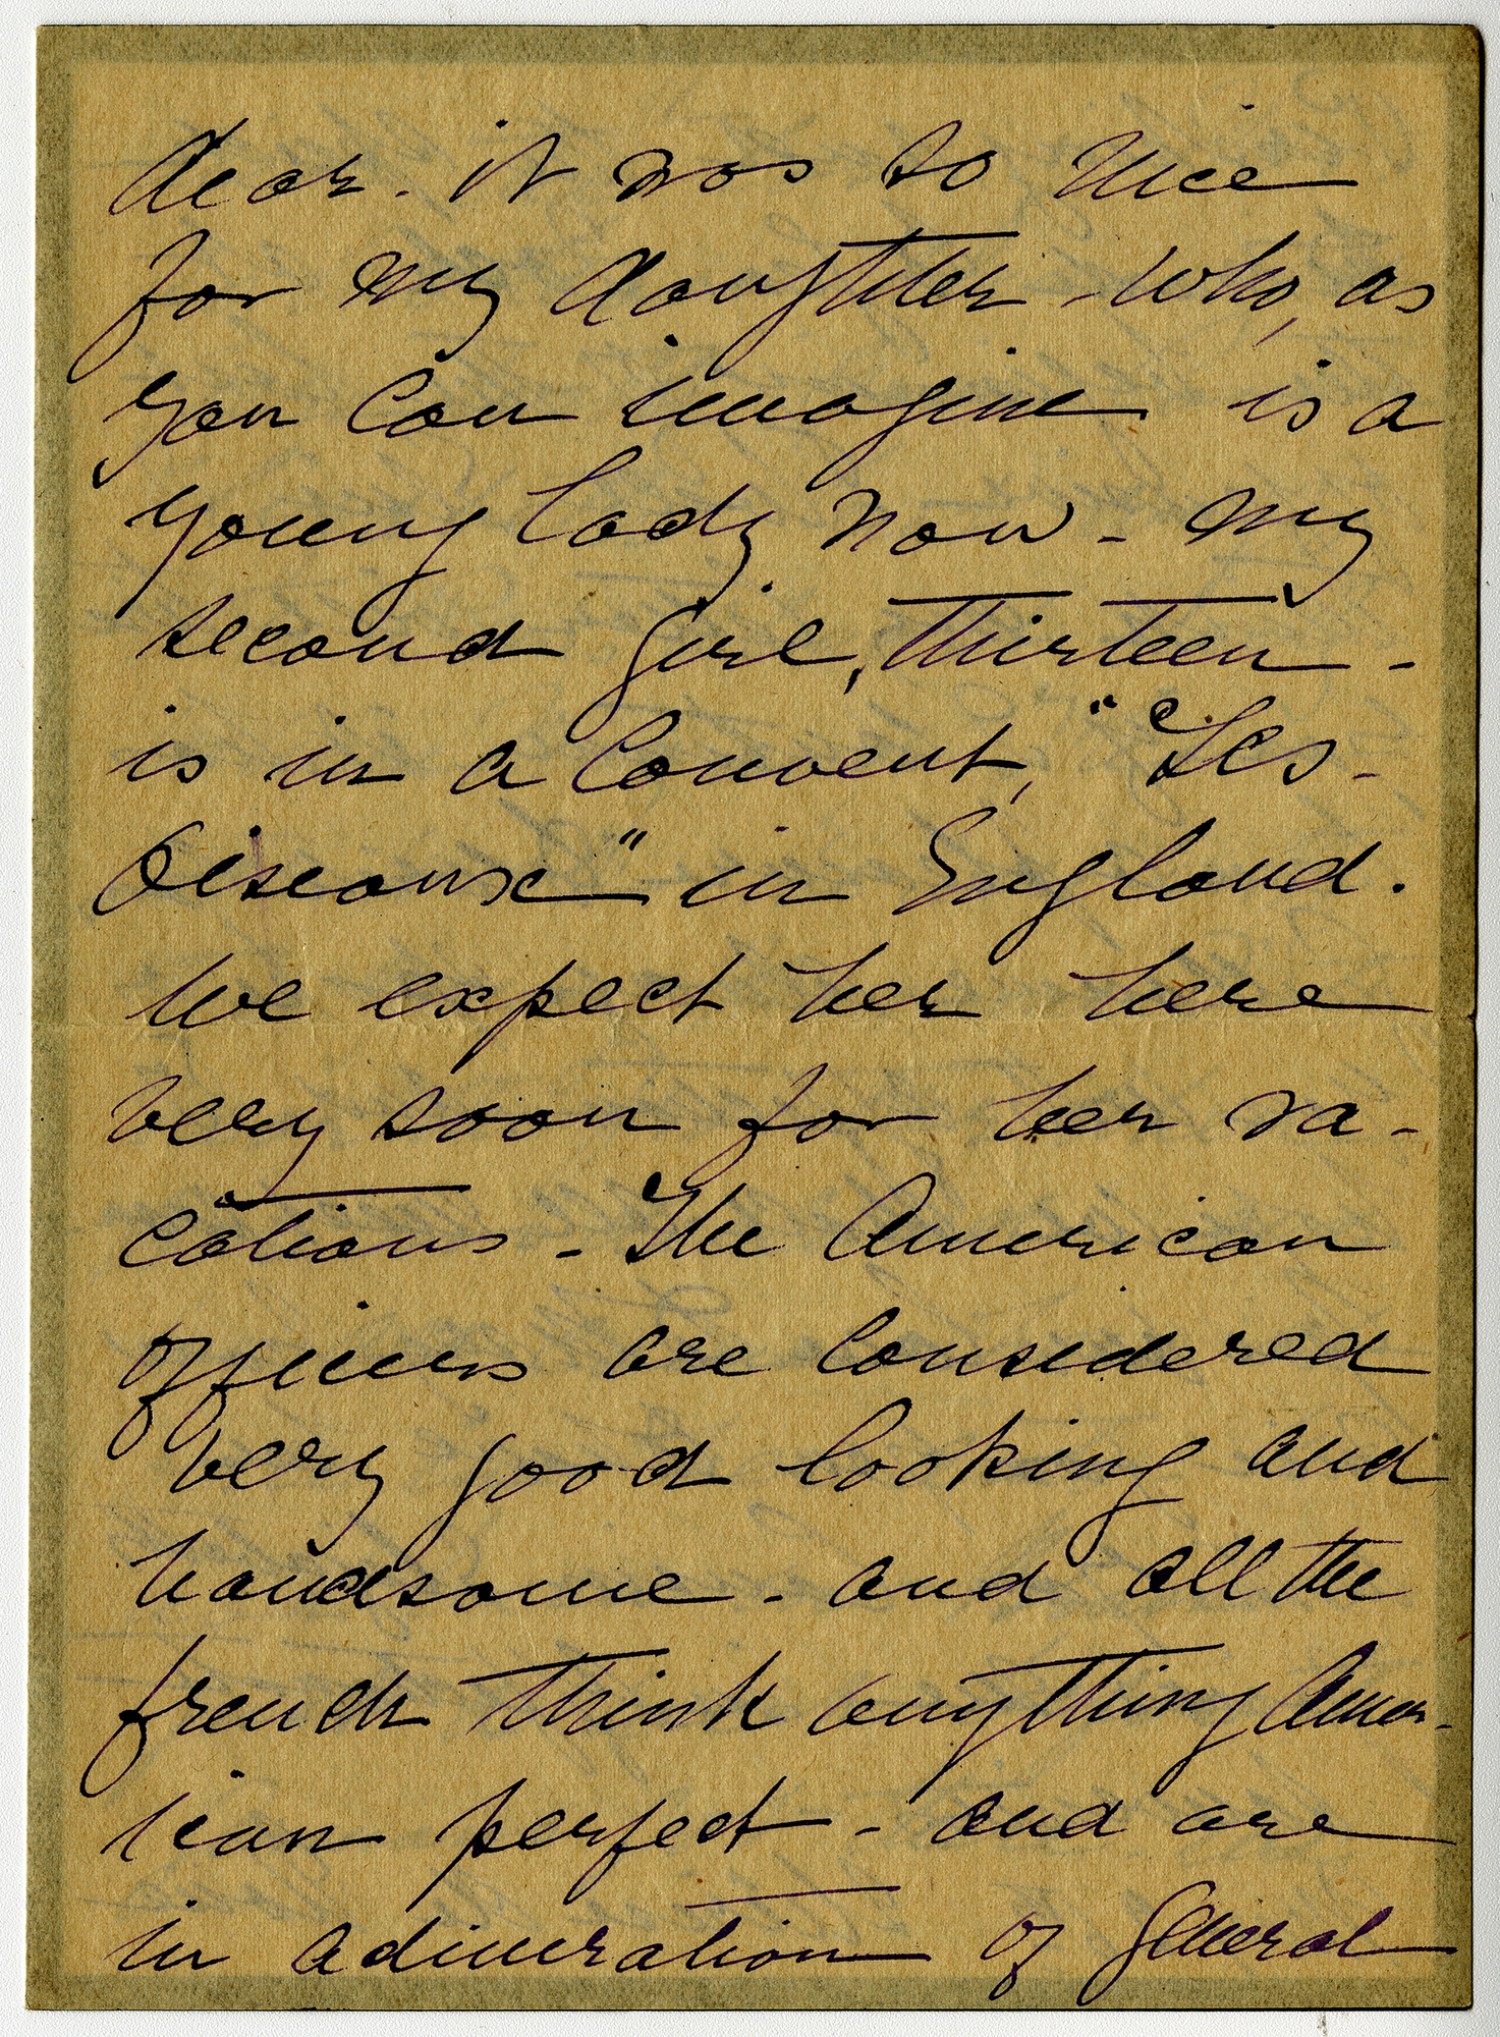 dear. it was so nice
for my daughter - who, as
you can imagine is a
young lady now - my
second girl, thirteen -
is in a Convent, "Les-
Oiseaux" in England.
We expect her here
very soon for her va-
cations - The American
officers are considered
very good looking and
handsome - and all the
french think anything Amer-
ican perfect - and are
in admiration of General